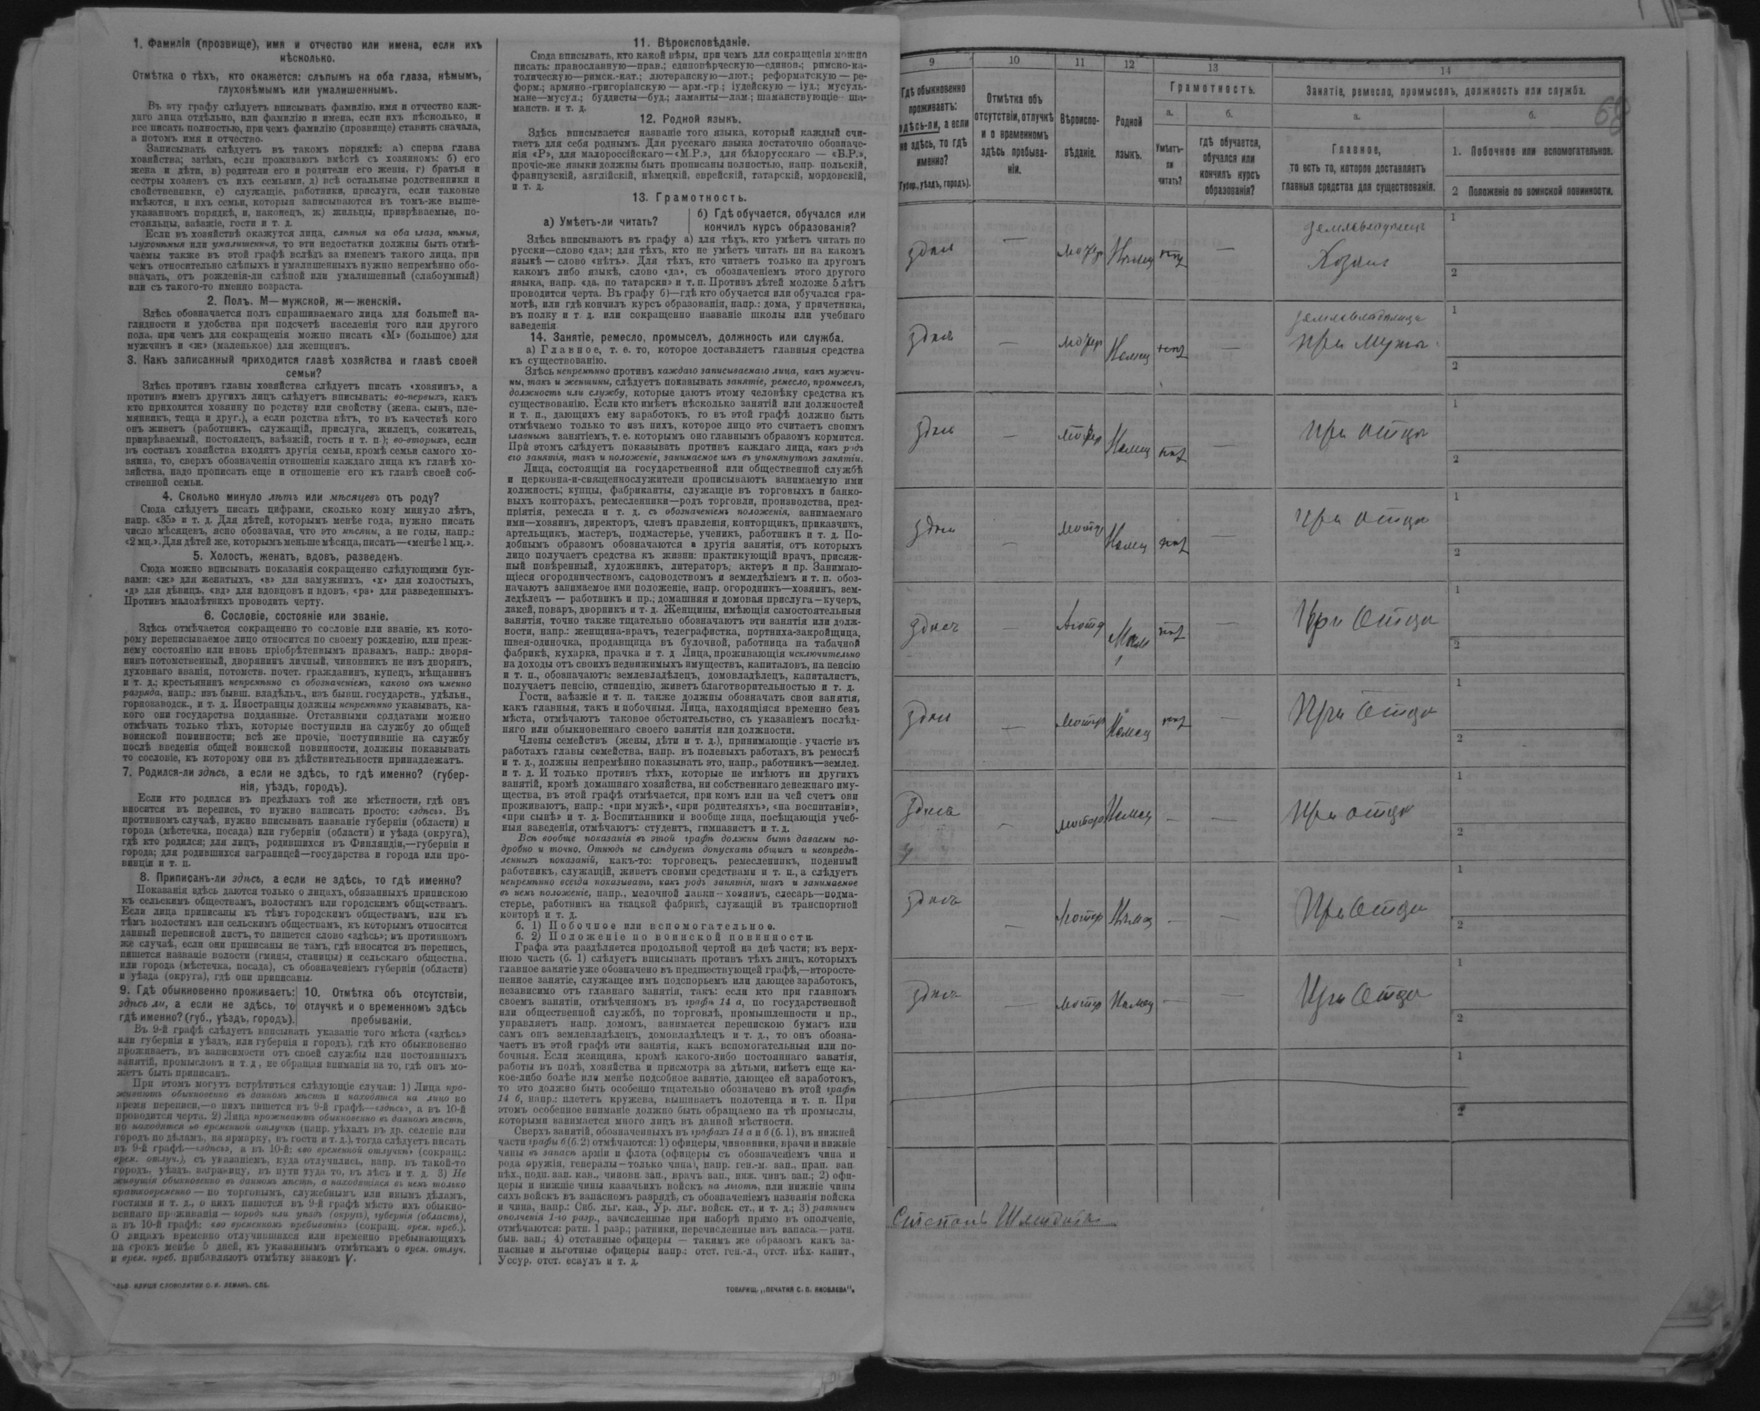 1. Фамилія (прозвище), имя и отчество или имена, если ихъ
нѣсколько.
Отмѣтка о тѣхъ, кто окажется: слѣпымъ на оба глаза, нѣмымъ,
глухонѣмымъ или умалишеннымъ.
Въ эту графу слѣдуетъ вписывать фамилію, имя и отчество каж-
даго лица отдѣльно, или фамилію и имена, если ихъ нѣсколько, и
все писать полностью, при чемъ фамилію (прозвище) ставить сначала,
а потомъ имя и отчество.
Записывать слѣдуетъ въ такомъ порядкѣ: а) сперва глава
хозяйства; затѣмъ, если проживаютъ вмѣстѣ съ хозяиномъ: б) его
жена и дѣти, в) родители его и родители его жены, г) братья и
сестры хозяевъ съ ихъ семьями, д) всѣ остальные родственники и
свойственники, е) служащіе, работники, прислуга, если таковые
имѣются, и ихъ семьи, которыя записываются въ томъ-же выше-
указанномъ порядкѣ, и, наконецъ, ж) жильцы, призрѣваемые, по-
стояльцы, заѣзжіе, гости и т. д.
Если въ хозяйствѣ окажутся лица, слѣпыя на оба глаза, нѣмыя,
глухонѣмыя или умалишенныя, то эти недостатки должны быть отмѣ-
чаемы также въ этой графѣ вслѣдъ за именемъ такого лица, при
чемъ относительно слѣпыхъ и умалишенныхъ нужно непремѣнно обо-
значать, отъ рожденія-ли слѣпой или умалишенный (слабоумный)
или съ такого-то именно возраста.
2. Полъ. М—мужской, ж—женскій.
Здѣсь обозначается полъ спрашиваемаго лица для большей на-
глядности и удобства при подсчетѣ населенія того или другого
пола, при чемъ для сокращенія можно писать «М» (большое) для
мужчинъ и «ж» (маленькое) для женщинъ.
3. Какъ записанный приходится главѣ хозяйства и главѣ своей
семьи?
Здѣсь противъ главы хозяйства слѣдуетъ писать «хозяинъ», а
противъ именъ другихъ лицъ слѣдуетъ вписывать: во-первыхъ, какъ
кто приходится хозяину по родству или свойству (жена, сынъ, пле-
мянникъ, теща и друг.), а если родства нѣтъ, то въ качествѣ кого
онъ живетъ (работникъ, служащій, прислуга, жилецъ, сожитель,
призрѣваемый, постоялецъ, заѣзжій, гость и т. п.); во-вторыхъ, если
въ составъ хозяйства входятъ другія семьи, кромѣ семьи самого хо-
зяина, то, сверхъ обозначенія отношенія каждаго лица къ главѣ хо-
зяйства, надо прописать еще и отношеніе его къ главѣ своей соб-
ственной семьи.
4. Сколько минуло лѣтъ или мѣсяцевъ отъ роду?
Сюда слѣдуетъ писать цифрами, сколько кому минуло лѣтъ,
напр. «35» и т. д. Для дѣтей, которымъ менѣе года, нужно писать
число мѣсяцевъ, ясно обозначая, что это мѣсяцы, а не годы, напр.:
«2 мц.». Для дѣтей же, которымъ меньше мѣсяца, писать—«менѣе 1 мц.».
5. Холостъ, женатъ, вдовъ, разведенъ.
Сюда можно вписывать показанія сокращенно слѣдующими бук-
вами: «ж» для женатыхъ, «з» для замужнихъ, «х» для холостыхъ,
«д» для дѣвицъ, «вд» для вдовцовъ и вдовъ, «ра» для разведенныхъ.
Противъ малолѣтнихъ проводить черту.
6. Сословіе, состояніе или званіе.
Здѣсь отмѣчается сокращенно то сословіе или званіе, къ кото-
рому переписываемое лицо относится по своему рожденію, или преж-
нему состоянію или вновь пріобрѣтеннымъ правамъ, напр.: дворя-
нинъ потомственный, дворянинъ личный, чиновникъ не изъ дворянъ,
духовнаго званія, потомств. почет. гражданинъ, купецъ, мѣщанинъ
и т. д.; крестьянинъ непремѣнно съ обозначеніемъ, какого онъ именно
разряда, напр.: изъ бывш. владѣльч., изъ бывш. государств., удѣльн.,
горнозаводск., и т. д. Иностранцы должны непремѣнно указывать, ка-
кого они государства подданные. Отставными солдатами можно
отмѣчать только тѣхъ, которые поступили на службу до общей
воинской повинности; всѣ же прочіе, поступившіе на службу
послѣ введенія общей воинской повинности, должны показывать
то сословіе, къ которому они въ дѣйствительности принадлежатъ.
7. Родился-ли здѣсь, а если не здѣсь, то гдѣ именно? (губер-
нія, уѣздъ, городъ).
Если кто родился въ предѣлахъ той же мѣстности, гдѣ онъ
вносится въ перепись, то нужно написать просто: «здѣсь». Въ
противномъ случаѣ, нужно вписывать названіе губерніи (области) и
города (мѣстечка, посада) или губерніи (области) и уѣзда (округа),
гдѣ кто родился; для лицъ, родившихся въ Финляндіи,—губерніи и
города; для родившихся заграницей—государства и города или про-
винціи и т. п.
8. Приписанъ-ли здѣсь, а если не здѣсь, то гдѣ именно?
Показанія здѣсь даются только о лицахъ, обязанныхъ припискою
къ сельскимъ обществамъ, волостямъ или городскимъ обществамъ.
Если лица приписаны къ тѣмъ городскимъ обществамъ, или къ
тѣмъ волостямъ или сельскимъ обществамъ, къ которымъ относится
данный переписной листъ, то пишется слово «здѣсь»; въ противномъ
же случаѣ, если они приписаны не тамъ, гдѣ вносятся въ перепись,
пишется названіе волости (гмины, станицы) и сельскаго общества,
или города (мѣстечка, посада), съ обозначеніемъ губерніи (области)
и уѣзда (округа), гдѣ они приписаны.
9. Гдѣ обыкновенно проживаетъ:
здѣсь ли, а если не здѣсь, то
гдѣ именно? (губ., уѣздъ, городъ).
10. Отмѣтка объ отсутствіи,
отлучкѣ и о временномъ здѣсь
пребываніи.
Въ 9-й графѣ слѣдуетъ вписывать указаніе того мѣста («здѣсь»
или губернія и уѣздъ, или губернія и городъ), гдѣ кто обыкновенно
проживаетъ, въ зависимости отъ своей службы или постоянныхъ
занятій, промысловъ и т. д., не обращая вниманія на то, гдѣ онъ мо-
жетъ быть приписанъ.
При этомъ могутъ встрѣтиться слѣдующіе случаи: 1) Лица про-
живаютъ обыкновенно въ данномъ мѣстѣ и находятся на лицо во
время переписи,—о нихъ пишется въ 9-й графѣ—«здѣсь», а въ 10-й
проводится черта. 2) Лица проживаютъ обыкновенно въ данномъ мѣстѣ,
но находятся во временной отлучкѣ (напр. уѣхалъ въ др. селеніе или
городъ по дѣламъ, на ярмарку, въ гости и т. д.), тогда слѣдуетъ писать
въ 9-й графѣ—«здѣсь», а въ 10-й: «во временной отлучкѣ» (сокращ.:
врем. отлуч.), съ указаніемъ, куда отлучились, напр. въ такой-то
городъ, уѣздъ, заграницу, въ пути туда то, въ лѣсъ и т. д. 3) Не
живущія обыкновенно въ данномъ мѣстѣ, а находятся въ немъ только
кратковременно — по торговымъ, служебнымъ или инымъ дѣламъ,
гостями и т. д., о нихъ пишется въ 9-й графѣ мѣсто ихъ обыкно-
веннаго проживанія — городъ или уѣздъ (округъ), губернія (область),
а въ 10-й графѣ: «во временномъ пребываніи» (сокращ. врем. преб.).
О лицахъ временно отлучившихся или временно пребывающихъ
на срокъ менѣе 5 дней, къ указаннымъ отмѣткамъ о врем. отлуч.
и врем. преб. прибавляютъ отмѣтку знакомъ V.
СЛОВОЛИТНИ О. И. ЛЕМАНЪ, СПБ.
11. Вѣроисповѣданіе.
Сюда вписывать, кто какой вѣры, при чемъ для сокращенія можно
писать: православную—прав.; единовѣрческую—единов.; римско-ка-
толическую—римск.-кат.; лютеранскую—лют.; реформатскую — ре-
форм.; армяно-григоріанскую — арм.-гр.; іудейскую — іуд.; мусуль-
мане—мусул.; буддисты—буд.; ламаиты—лам.; шаманствующіе—ша-
манств. и т. д.
12. Родной языкъ.
Здѣсь вписывается названіе того языка, который каждый счи-
таетъ для себя роднымъ. Для русскаго языка достаточно обозначе-
нія «Р», для малороссійскаго—«М.Р.», для бѣлорусскаго — «Б.Р.»,
прочіе-же языки должны быть прописаны полностью, напр. польскій,
французскій, англійскій, нѣмецкій, еврейскій, татарскій, мордовскій,
и т. д.
13. Грамотность.
а) Умѣетъ-ли читать?
б) Гдѣ обучается, обучался или
кончилъ курсъ образованія?
Здѣсь вписываютъ въ графу а) для тѣхъ, кто умѣетъ читать по
русски—слово «да»; для тѣхъ, кто не умѣетъ читать ни на какомъ
языкѣ — слово «нѣтъ». Для тѣхъ, кто читаетъ только на другомъ
какомъ либо языкѣ, слово «да», съ обозначеніемъ этого другого
языка, напр. «да, по татарски» и т. п. Противъ дѣтей моложе 5 лѣтъ
проводится черта. Въ графу б)—гдѣ кто обучается или обучался гра-
мотѣ, или гдѣ кончилъ курсъ образованія, напр.: дома, у причетника,
въ полку и т. д. или сокращенно названіе школы или учебнаго
заведенія.
14. Занятіе, ремесло, промыселъ, должность или служба.
а) Главное, т. е. то, которое доставляетъ главныя средства
къ существованію.
Здѣсь непремѣнно противъ каждаго записываемаго лица, какъ мужчи-
ны, такъ и женщины, слѣдуетъ показывать занятіе, ремесло, промыселъ,
должность или службу, которые даютъ этому человѣку средства къ
существованію. Если кто имѣетъ нѣсколько занятій или должностей
и т. п., дающихъ ему заработокъ, то въ этой графѣ должно быть
отмѣчаемо только то изъ нихъ, которое лицо это считаетъ своимъ
главнымъ занятіемъ, т. е. которымъ оно главнымъ образомъ кормится.
При этомъ слѣдуетъ показывать противъ каждаго лица, какъ родъ
его занятія, такъ и положеніе, занимаемое имъ въ упомянутомъ занятіи.
Лица, состоящія на государственной или общественной службѣ
и церковно-и-священнослужители прописываютъ занимаемую ими
должность; купцы, фабриканты, служащіе въ торговыхъ и банко-
выхъ конторахъ, ремесленники—родъ торговли, производства, пред-
пріятія, ремесла и т. д. съ обозначеніемъ положенія, занимаемаго
ими—хозяинъ, директоръ, членъ правленія, конторщикъ, приказчикъ,
артельщикъ, мастеръ, подмастерье, ученикъ, работникъ и т. д. По-
добнымъ образомъ обозначаются и другія занятія, отъ которыхъ
лицо получаетъ средства къ жизни: практикующій врачъ, присяж-
ный повѣренный, художникъ, литераторъ, актеръ и пр. Занимаю-
щіеся огородничествомъ, садоводствомъ и земледѣліемъ и т. п. обоз-
начаютъ занимаемое ими положеніе, напр. огородникъ—хозяинъ, зем-
ледѣлецъ — работникъ и пр.; домашняя и домовая прислуга—кучеръ,
лакей, поваръ, дворникъ и т. д. Женщины, имѣющія самостоятельныя
занятія, точно также тщательно обозначаютъ эти занятія или долж-
ности, напр.: женщина-врачъ, телеграфистка, портниха-закройщица,
швея-одиночка, продавщица въ булочной, работница на табачной
фабрикѣ, кухарка, прачка и т. д. Лица, проживающія исключительно
на доходы отъ своихъ недвижимыхъ имуществъ, капиталовъ, на пенсію
и т. п., обозначаютъ: землевладѣлецъ, домовладѣлецъ, капиталистъ,
получаетъ пенсію, стипендію, живетъ благотворительностью и т. д.
Гости, заѣзжіе и т. п. также должны обозначать свои занятія,
какъ главныя, такъ и побочныя. Лица, находящіяся временно безъ
мѣста, отмѣчаютъ таковое обстоятельство, съ указаніемъ послѣд-
няго или обыкновеннаго своего занятія или должности.
Члены семействъ (жены, дѣти и т. д.), принимающіе участіе въ
работахъ главы семейства, напр. въ полевыхъ работахъ, въ ремеслѣ
и т. д., должны непремѣнно показывать это, напр., работникъ—землед.
и т. д. И только противъ тѣхъ, которые не имѣютъ ни другихъ
занятій, кромѣ домашняго хозяйства, ни собственнаго денежнаго иму-
щества, въ этой графѣ отмѣчается, при комъ или на чей счетъ они
проживаютъ, напр.: «при мужѣ», «при родителяхъ», «на воспитаніи»,
«при сынѣ» и т. д. Воспитанники и вообще лица, посѣщающія учеб-
ныя заведенія, отмѣчаютъ: студентъ, гимназистъ и т. д.
Всѣ вообще показанія въ этой графѣ должны быть даваемы по-
дробно и точно. Отнюдь не слѣдуетъ допускать общихъ и неопредѣ-
ленныхъ показаній, какъ-то: торговецъ, ремесленникъ, поденный
работникъ, служащій, живетъ своими средствами и т. п., а слѣдуетъ
непремѣнно всегда показывать, какъ родъ занятія, такъ и занимаемое
въ немъ положеніе, напр., мелочной лавки—хозяинъ, слесарь—подма-
стерье, работникъ на ткацкой фабрикѣ, служащій въ транспортной
конторѣ и т. д.
б. 1) Побочное или вспомогательное.
б. 2) Положеніе по воинской повинности.
Графа эта раздѣляется продольной чертой на двѣ части; въ верх-
нюю часть (б. 1) слѣдуетъ вписывать противъ тѣхъ лицъ, которыхъ
главное занятіе уже обозначено въ предшествующей графѣ,—второсте-
пенное занятіе, служащее имъ подспорьемъ или дающее заработокъ,
независимо отъ главнаго занятія, такъ: если кто при главномъ
своемъ занятіи, отмѣченномъ въ графѣ 14 а, по государственной
или общественной службѣ, по торговлѣ, промышленности и пр.,
управляетъ напр. домомъ, занимается перепискою бумагъ или
самъ онъ землевладѣлецъ, домовладѣлецъ и т. д., то онъ обозна-
чаетъ въ этой графѣ эти занятія, какъ вспомогательныя или по-
бочныя. Если женщина, кромѣ какого-либо постояннаго занятія,
работы въ полѣ, хозяйства и присмотра за дѣтьми, имѣетъ еще ка-
кое-либо болѣе или менѣе подсобное занятіе, дающее ей заработокъ,
то это должно быть особенно тщательно обозначено въ этой графѣ
14 б, напр.: плететъ кружева, вышиваетъ полотенца и т. п. При
этомъ особенное вниманіе должно быть обращаемо на тѣ промыслы,
которыми занимается много лицъ въ данной мѣстности.
Сверхъ занятій, обозначенныхъ въ графахъ 14 а и б (б. 1), въ нижней
части графы б (б. 2) отмѣчаются: 1) офицеры, чиновники, врачи и нижніе
чины въ запасѣ арміи и флота (офицеры съ обозначеніемъ чина и
рода оружія, генералы—только чина), напр. ген.-м. зап., прап. зап.
пѣх., подп. зап. кав., чиновн. зап., врачъ зап., ниж. чинъ зап.; 2) офи-
церы и нижніе чины казачьихъ войскъ на льготѣ, или нижніе чины
сихъ войскъ въ запасномъ разрядѣ, съ обозначеніемъ названія войска
и чина, напр.: Сиб. льг. каз., Ур. льг. войск. ст., и т. д.; 3) ратники
ополченія 1-го разр., зачисленные при наборѣ прямо въ ополченіе,
отмѣчаются: ратн. 1 разр.; ратники, перечисленные изъ запаса—ратн.
быв. зап.; 4) отставные офицеры — такимъ же образомъ какъ за-
пасные и льготные офицеры напр.: отст. ген.-л., отст. пѣх. капит.,
Уссур. отст. есаулъ и т. д.
ТОВАРИЩ. „ПЕЧАТНЯ С. П. ЯКОВЛЕВА".
9 10 11 12 13 14
Гдѣ обыкновенно
проживаетъ:
здѣсь-ли, а если
не здѣсь, то гдѣ
именно?
(Губер., уѣздъ, городъ).
Отмѣтка объ
отсутствіи, отлучкѣ
и о временномъ
здѣсь пребыва-
ніи.
Вѣроиспо-
вѣданіе.
Родной
языкъ.
Грамотность.
а. б.
Умѣетъ-
ли
читать?
гдѣ обучается,
обучался или
кончилъ курсъ
образованія?
Занятіе, ремесло, промыселъ, должность или служба.
68
а. б.
Главное,
то есть то, которое доставляетъ
главныя средства для существованія.
1. Побочное или вспомогательное.
2 Положеніе по воинской повинности.
1
здѣсь — —
2
1
здѣсь — —
при мужѣ
2
1
здѣсь — — при отцѣ
2
1
здѣсь — — при отцѣ
2
1
здѣсь — — При Отцѣ
2
1
здѣсь — — При Отцѣ
2
1
здѣсь — — — При отцѣ
2
1
здѣсь — — — При Отцѣ
2
1
здѣсь — — — При Отцѣ
2
1
2